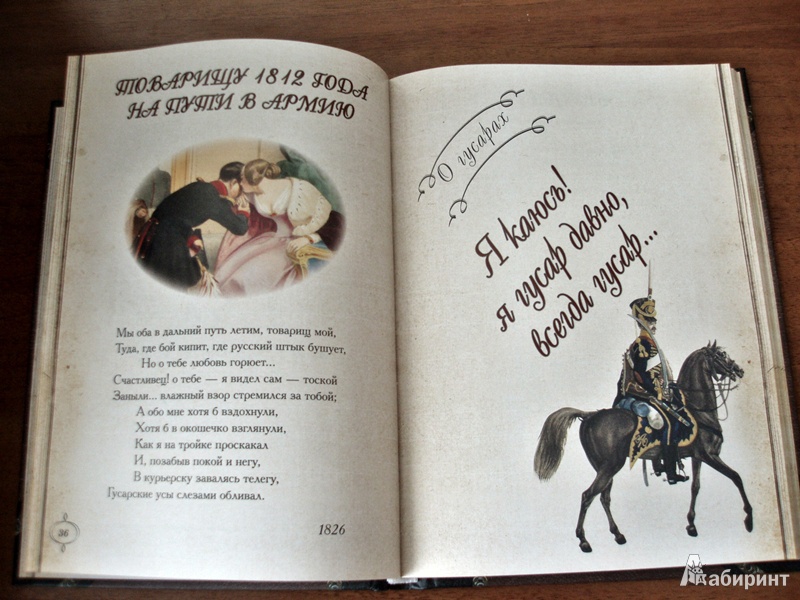 ТОВАРИЩУ 1812 ГОДА
НА ПУТИ В АРМИЮ
Мы оба в дальний путь летим, товарищ мой,
Туда, где бой кипит, где русский штык бушует,
Но о тебе любовь горюет...
Счастливец! о тебе — я видел сам — тоской
Заныли... влажный взор стремился за тобой;
А обо мне хотя б вздохнули,
Хотя б в окошечко взглянули,
Как я на тройке проскакал
И, позабыв покой и негу,
В курьерску завалясь телегу,
Гусарские усы слезами обливал.
1826
36
О гусарах
Я каюсь!
я гусар давно,
всегда гусар...
Лабиринт